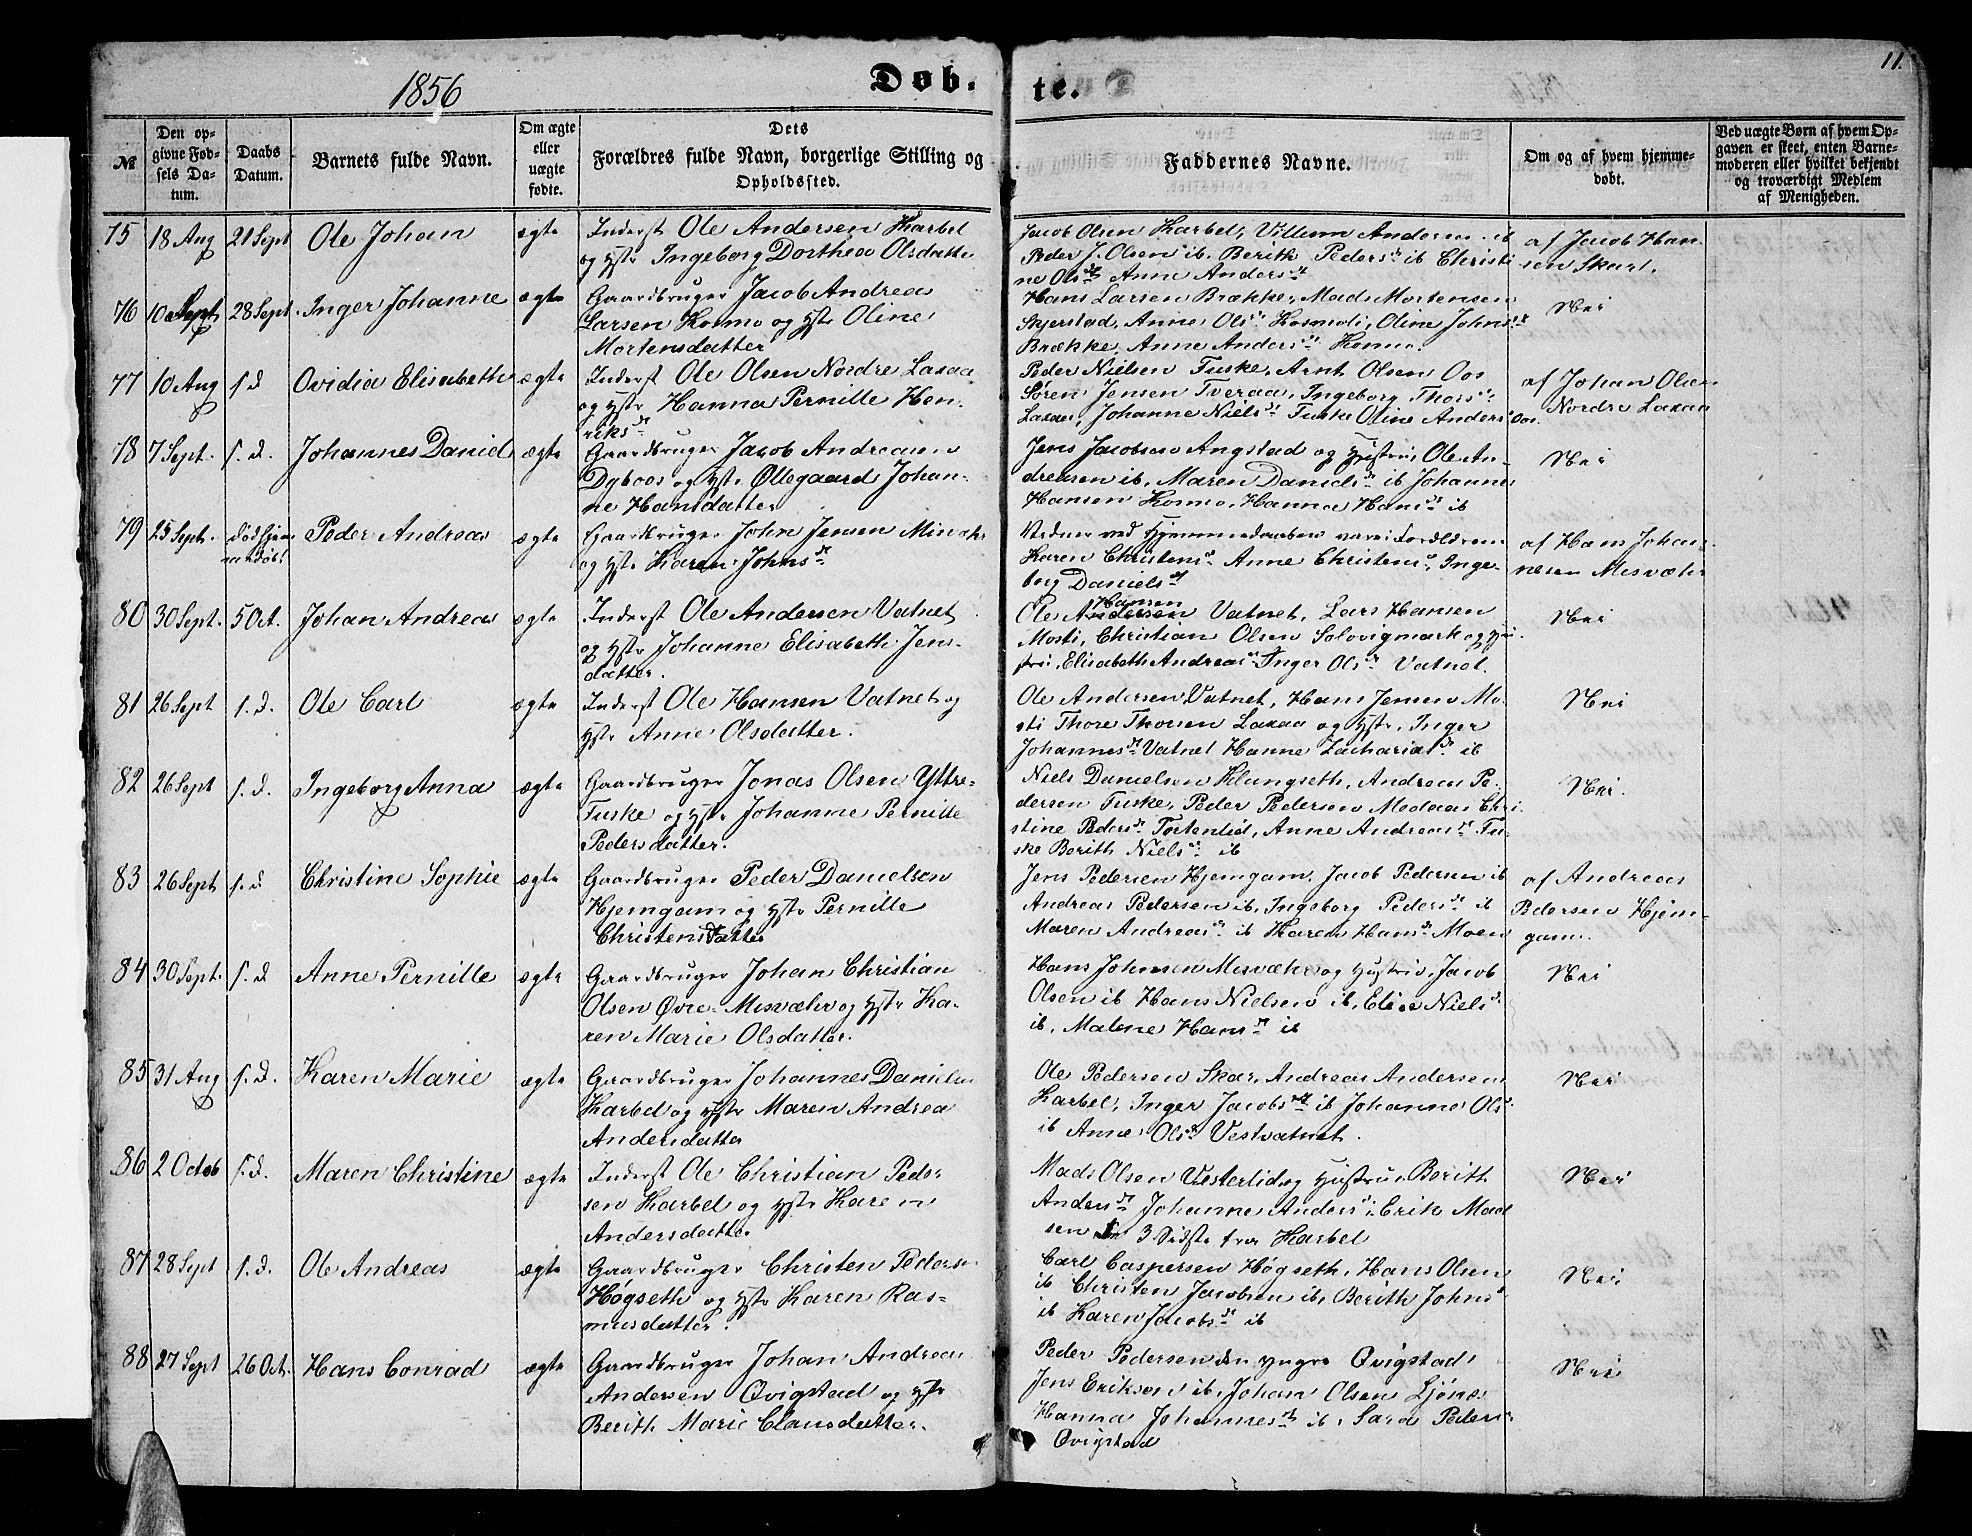 11.
1856
Døb. te.
№
Den op-
givne Fød-
sels Da-
tum.
Daabs
Datum.
Barnets fulde Navn.
Om ægte
eller
uægte
fødte.
Dets
Forældres fulde Navn, borgerlige Stilling og
Opholdssted.
Faddernes Navne.
Om og af hvem hjemme-
døbt.
Ved uægte Børn af hvem Op-
gaven er skeet, enten Barne-
moderen eller hvilket bekjendt
og troværdigt Medlem
af Menigheden.
75 18 Aug 21 Sept Ole Johan ægte
Inderst Ole Andersen Karbel
og Hstr Ingeborg Dorthea Olsdatter
Jacob Olsen Karbel, Villum Andersen ib
Peder J. Olsen ib. Berith Peders dt ib Christi
ne Ols dt Anne Anders dt
af Jacob Han-
sen Skarl.
76 10 Sept 28 Sept. Inger Johanne ægte
Gaardbruger Jacob Andreas
Larsen Kosmo og Hstr Oline
Mortensdatter
Hans Larsen Brække, Mads Mortensen
Skjerstad, Anne Ols dt Kosmoli, Oline Johns dt
Brække, Anne Anders dt Kosmo.
Nei
77 10 Aug s. d Ovidia Elisabeth ægte
Inderst Ole Olsen Nordre Laxaa
og Hstr Hanna Pernille Hen-
riks dt
Peder Nielsen Fuske, Arnt Olsen Oos
Sören Jensen Tveraa, Ingeborg Thors dt
Laxaa, Johanne Niels dt Fuske Oline Anders dt Oos.
af Johan Olsen
Nordre Laxaa
78 7 Sept. s. d. Johannes Daniel ægte
Gaardbruger Jacob Andreasen
Dyboos og Hstr Øllegaard Johan-
ne Hansdatter
Jens Jacobsen Angstad og Hustrue, Ole An-
dreasen ib, Maren Daniels dt ib Johannes
Hansen Kosmo, Hanna Hans dt ib
Nei
79 25 Sept. død hjem-
medøbt Peder Andreas ægte
Gaardbruger John Jensen Misvær
og Hstr Karen Johns dt
Vidner ved Hjemmedaaben vare: Forældrene
Karen Christens dt Anne Christens dt, Inge-
borg Daniels dt
af Hans Johan-
nesen Misvær
80 30 Sept. 5 Oct. Johan Andreas ægte
Inderst Ole Andersen Vatnet
og Hstr Johanne Elisabeth Jens-
datter.
Hansen
Ole Andersen Vatnet, Lars Hansen
Mosti, Christian Olsen Solovigmark og Hu-
stru, Elisabeth Andreas dt Inger Ols dt Vatnet.
Nei
81 26 Sept s. d. Ole Carl ægte
Inderst Ole Hansen Vatnet og
Hstr Anne Olsdatter.
Ole Andersen Vatnet, Hans Jensen Mo-
sti Thore Thorsen Laxaa og Hstr, Inger
Johannes dt Vatnet Hanne Zacharias dt ib
Nei
82 26 Sept s. d. Ingeborg Anna ægte
Gaardbruger Jonas Olsen Yttre-
Fuske og Hstr Johanne Pernille
Pedersdatter.
Niels Danielsen Klungseth, Andreas Pe-
dersen Fuske, Peder Pedersen Modaas Chri-
stine Peders dt Tortenlid, Anne Andreas dt Fu-
ske Berith Niels dt ib
Nei.
83 26 Sept s. d Christine Sophie ægte
Gaardbruger Peder Danielsen
Hjemgam og Hstr Pernille
Christensdatter
Jens Pedersen Hjemgam, Jacob Pedersen ib
Andreas Pedersen ib, Ingeborg Peders dt ib
Maren Andreas dt ib Karen Hans dt Moen
af Andreas
Pedersen Hjem-
gam.
84 30 Sept. s. d Anne Pernille ægte
Gaardbruger Johan Christian
Olsen Øvre-Misvær og Hstr Ka-
ren Marie Olsdatter.
Hans Johnsen Misvær og Hustrue, Jacob
Olsen ib Hans Nielsen ib, Elise Niels dt
ib, Malene Hans dt ib
Nei
85 31 Aug s. d. Karen Marie ægte
Gaardbruger Johannes Danielsen
Karbel og Hstr Maren Andrea
Andersdatter
Ole Pedersen Skar, Andreas Andersen
Karbel, Inger Jacobs dt ib Johanne Ols dt
ib Anne Ols dt Vestvatnet.
Nei
86 2 Octob s. d. Maren Christine ægte
Inderst Ole Christian Peder-
sen Karbel og Hstr Karen
Andersdatter.
Mads Olsen Vesterlid og Hustrue, Berith
Anders dt Johanne Anders dt, Erik Mad
sen 3 Sidste fra Karbel
Nei
87 28 Sept s. d. Ole Andreas ægte
Gaardbruger Christen Pedersen
Høgseth og Hstr Karen Ras-
musdatter.
Carl Caspersen Høgseth, Hans Olsen
ib Christen Jacobsen ib, Berith Johns dt
ib Karen Jacobs dt ib
Nei
88 27 Sept 26 Oct. Hans Conrad ægte
Gaardbruger Johan Andreas
Andersen Qvigstad og Hstr
Berith Marie Clausdatter.
Peder Pedersen den yngre Qvigstad,
Jens Eriksen ib, Johan Olsen Ljønes
Hanna Johannes dt ib, Sara Peders dt
Qvigstad
Nei